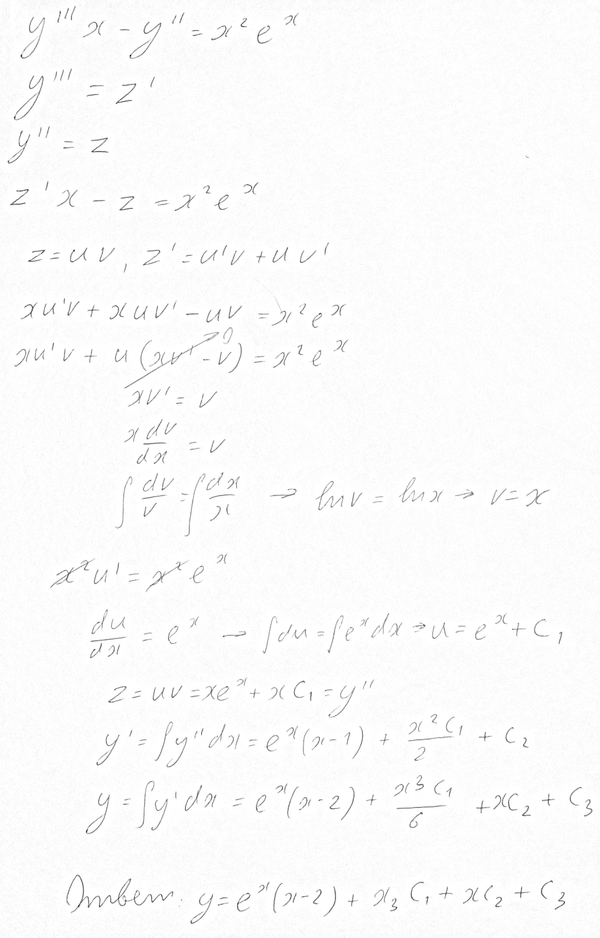 y''' x - y'' = x² e^x
y''' = z'
y'' = z
z' x - z = x² e^x
z = u v, z' = u'v + u v'
x u'v + x u v' - u v = x² e^x
x u'v + u (x v' - v) = x² e^x
0
x v' = v
x dv/dx = v
∫ dv/v = ∫ dx/x → ln v = ln x → v = x
x² u' = x² e^x
du/dx = e^x → ∫ du = ∫ e^x dx → u = e^x + C₁
z = u v = x e^x + x C₁ = y''
y' = ∫ y'' dx = e^x (x - 1) + x² C₁/2 + C₂
y = ∫ y' dx = e^x (x - 2) + x³ C₁/6 + x C₂ + C₃
Ответ: y = e^x (x - 2) + x₃ C₁ + x C₂ + C₃